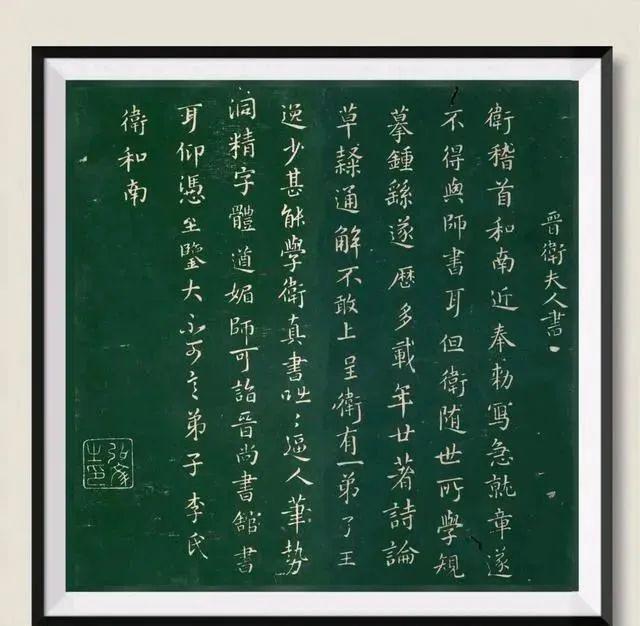 晉衛夫人書
衛稽首和南近奉勅寫急就章遂
不得與師書耳但衛随世所學規
摹鍾繇遂歷多載年廿著詩論
草隷通解不敢上呈衛有一弟子王
逸少甚能學衛真書咄〻逼人筆勢
洞精字體遒媚師可詣晉尚書館書
耳仰憑至鑒大不可言弟子李氏
衛和南